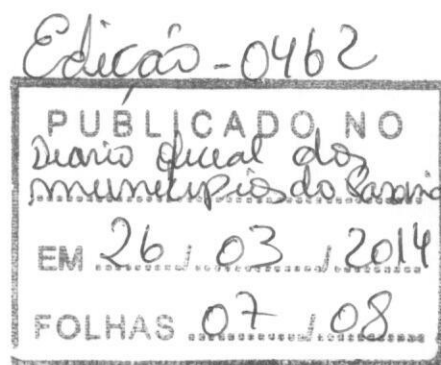 Edição - 0462
PUBLICADO NO
Diario oficial dos
municipios do Paraná
EM 26 / 03 / 2014
FOLHAS 07 / 08